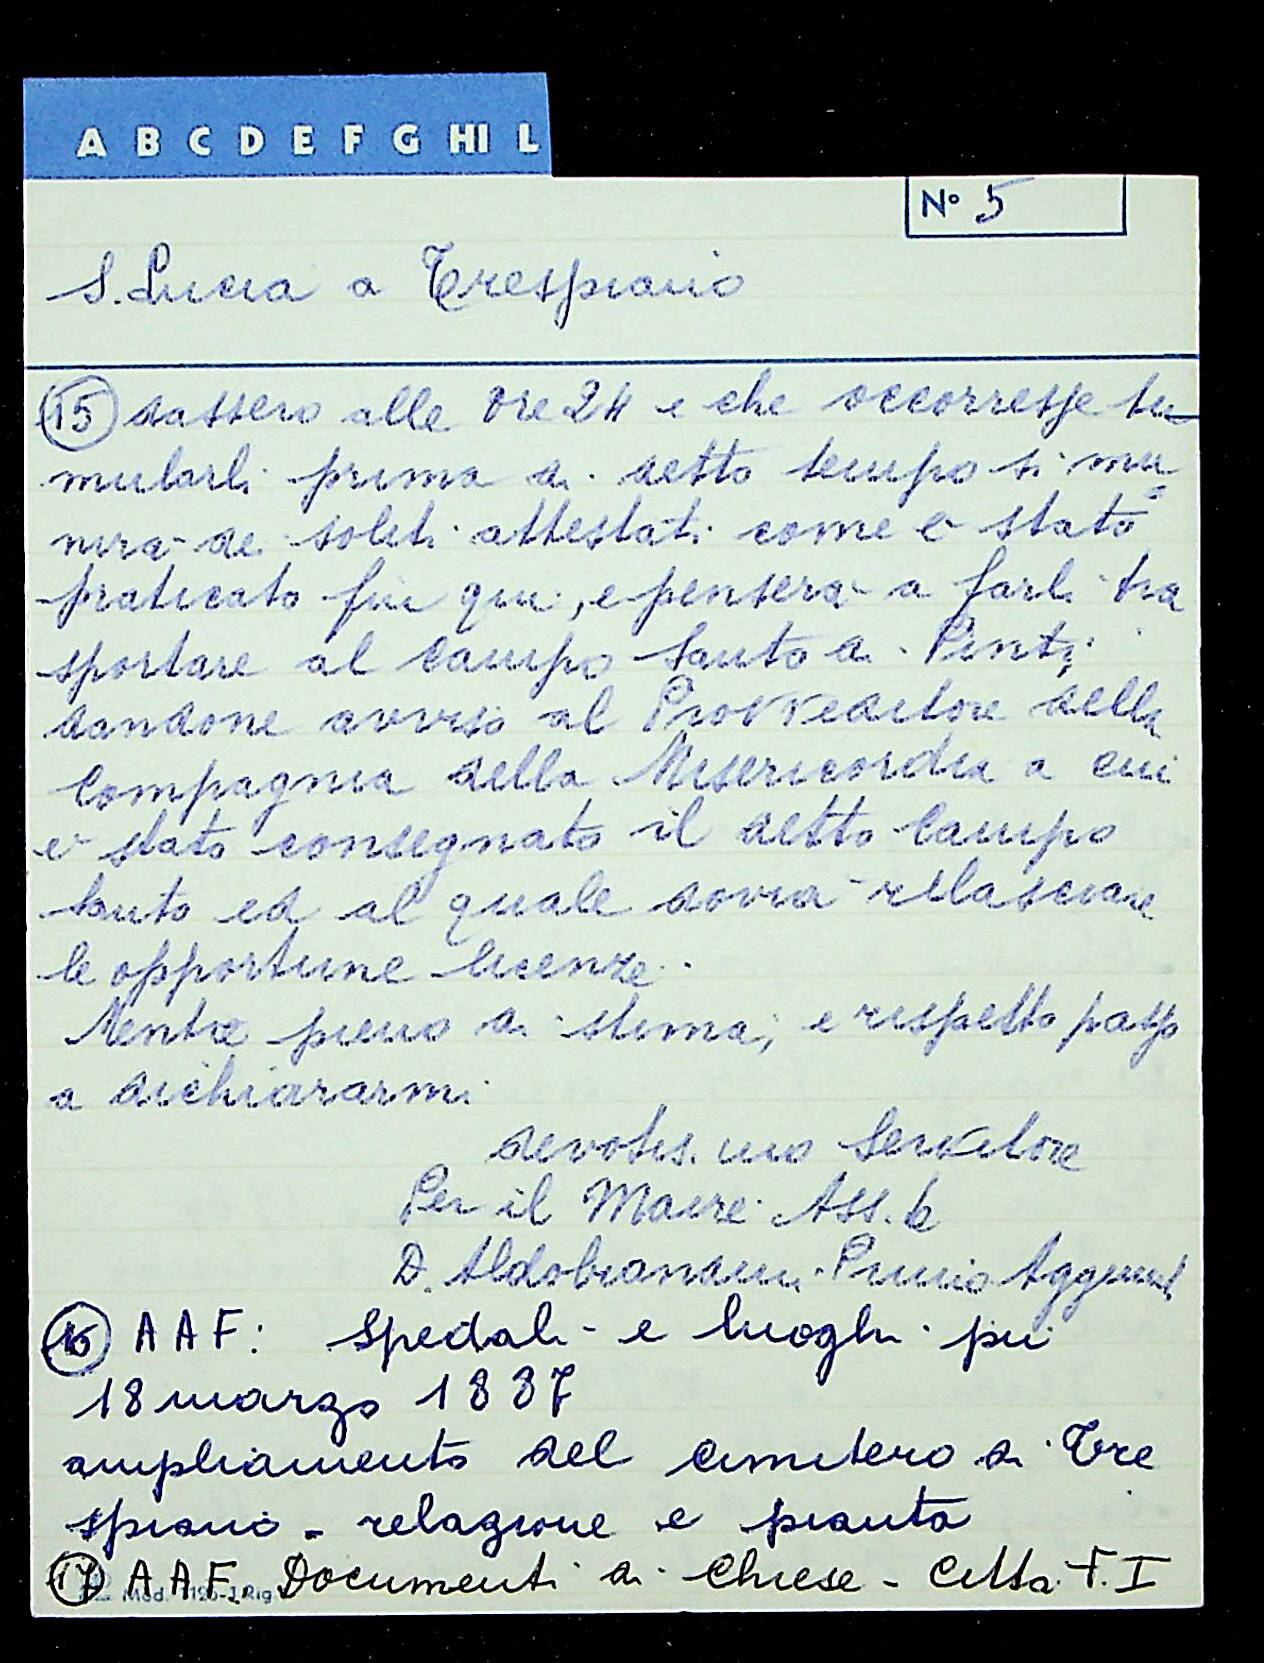 A B C D E F G HI L
N° 5
S. Lucia a Trespiano
15 dassero alle ore 24 e che occorresse tu
mularli prima di detto tempo si mu=
nirà de soliti attestati come è stato
praticato fin qui, e penserà a farli tra
sportare al Campo Santo a Pinti
dandone avviso al Provveditore della
Compagnia della Misericordia a cui
è stato consegnato il detto Campo
Santo ed al quale dovrà rilasciare
le opportune licenze.
Mentre pieno di stima, e rispetto passo
a dichiararmi
devotis. uno Servitore
Per il Maire Ass. te
D. Aldobrandini Primo Aggiunt
16 A A F: Spedali e luoghi pii
18 marzo 1887
ampliamento del cimitero di Tre
spiano - relazione e pianta
17 A A F. Documenti di Chiese - Città F. I